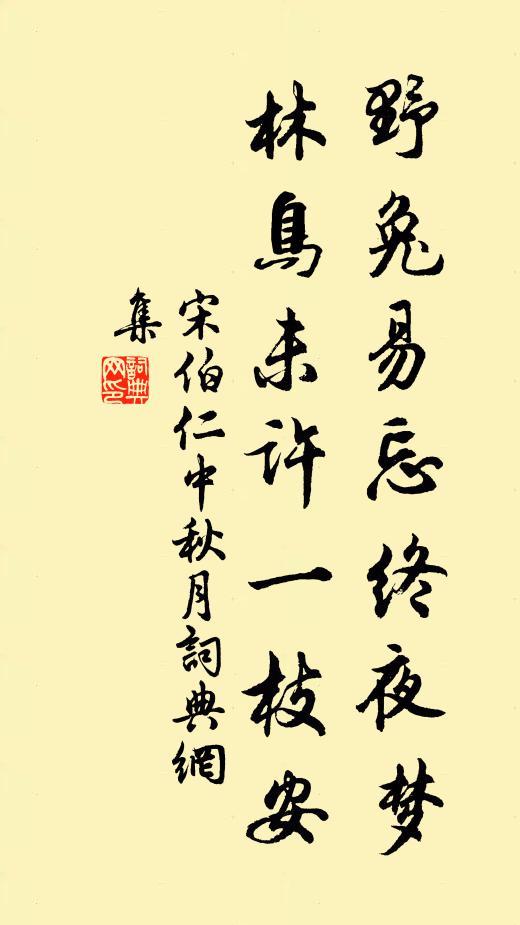 野兔易忘终夜梦
林鳥未许一枝安
宋伯仁中秋月詞典網
集
詞典網印